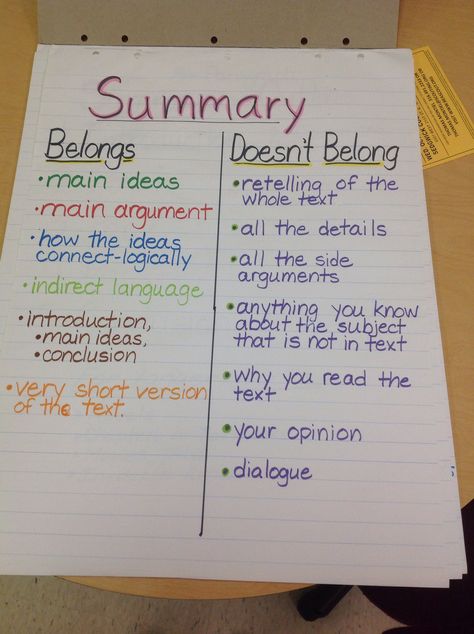 Summary
Belongs
• main ideas
• main argument
• how the ideas
connect-logically
• indirect language
• introduction,
• main ideas,
• conclusion
• very short version
of the text.
Doesn't Belong
• retelling of the
whole text
• all the details
• all the side
arguments
• anything you know
about the subject
that is not in text
• why you read the
text
• your opinion
• dialogue